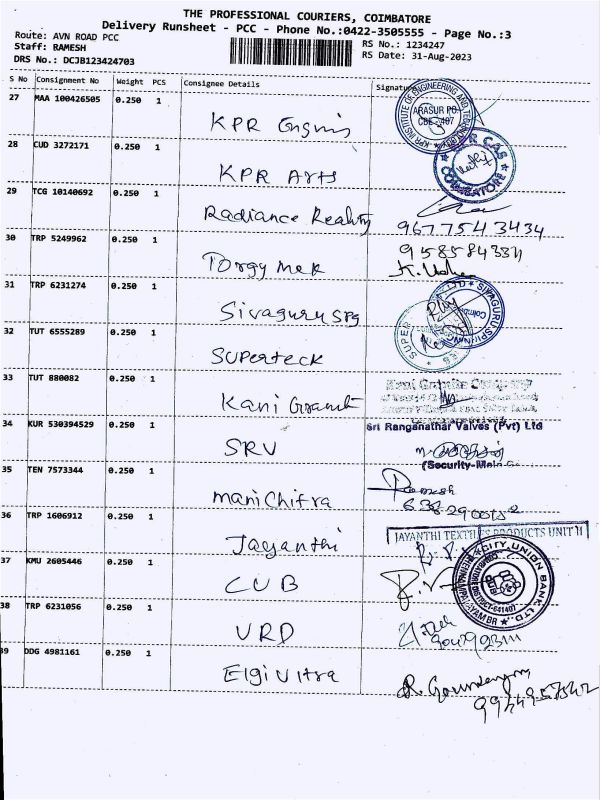 THE PROFESSIONAL COURIERS, COIMBATORE
Delivery Runsheet - PCC - Phone No.:0422-3505555 - Page No.:3
Route: AVN ROAD PCC RS No.: 1234247
Staff: RAMESH RS Date: 31-Aug-2023
DRS No.: DCJB123424703
S No Consignment No Weight PCS Consignee Details Signature
27 MAA 100426505 0.250 1 KPR Engning
KPR INSTITUTE OF ENGINEERING AND
ARASUR PO.
CBE-407
28 CUD 3272171 0.250 1 KPR Arts
CAS
COIMBATORE
29 TCG 10140692 0.250 1 Radiance Reality 9677543434
30 TRP 5249962 0.250 1 Torgy mek
31 TRP 6231274 0.250 1 Sivaguru spg
SIVAGURU SPINN
32 TUT 6555289 0.250 1 Superteck
SUPER
33 TUT 880082 0.250 1 Kani Granit
Kani Granite Company
34 KUR 530394529 0.250 1 SRV
Sri Ranganathar Valves (Pvt) Ltd
(Security-Main
35 TEN 7573344 0.250 1 mani Chitra Ramesh
36 TRP 1606912 0.250 1 Jayanthi
JAYANTHI TEXTILES PRODUCTS UNIT II
37 KMU 2605446 0.250 1 CUB
CITY UNION BANK LTD.
CUB
38 TRP 6231056 0.250 1 URD
39 DDG 4981161 0.250 1 Elgi Ultra